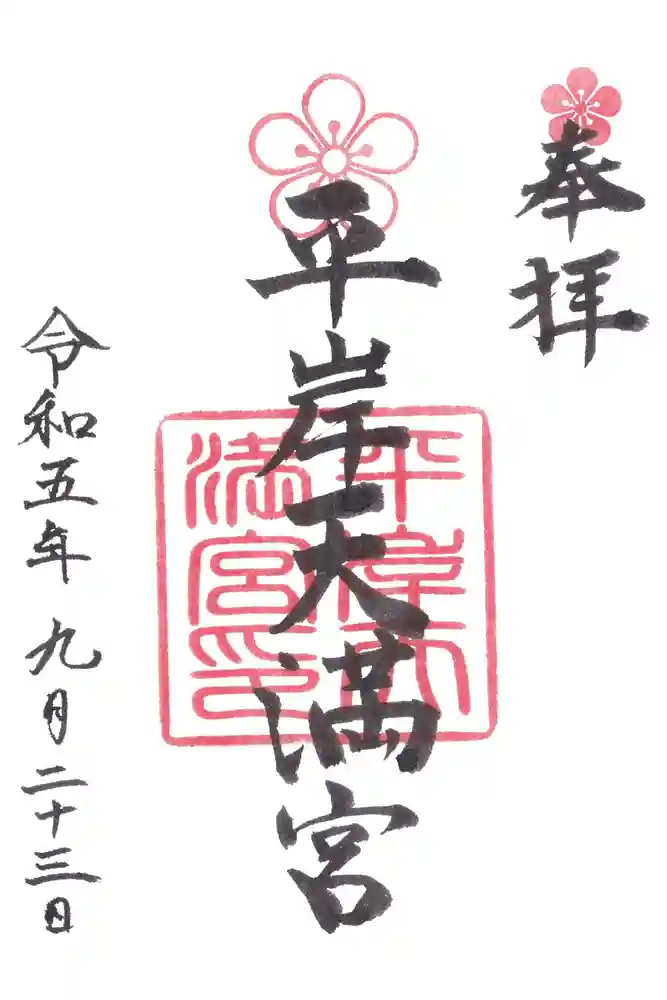 奉拝
平岸天満宮
平岸天
満宮印
令和五年九月二十三日